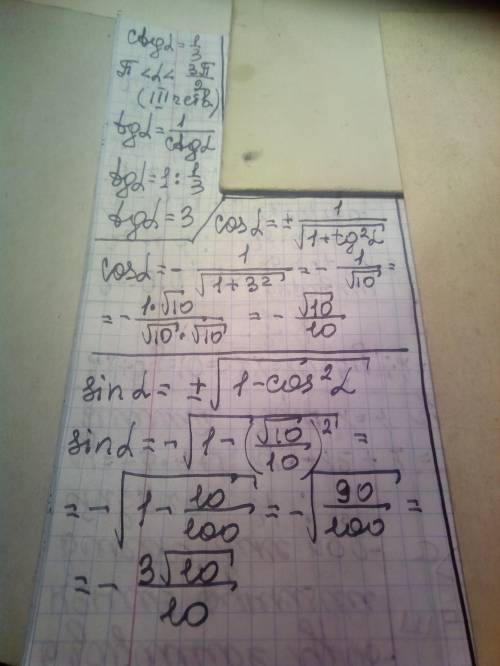 ctgα = 1/3
π < α < 3π/2
(III четв)
tgα = 1/ctgα
tgα = 1 : 1/3
tgα = 3
cosα = ± 1/√(1+tg²α)
cosα = - 1/√(1+3²) = - 1/√10 =
= - 1·√10/√10·√10 = - √10/10
sinα = ± √(1-cos²α)
sinα = -√(1-(√10/10)²) =
= -√(1-10/100) = -√(90/100) =
= - 3√10/10